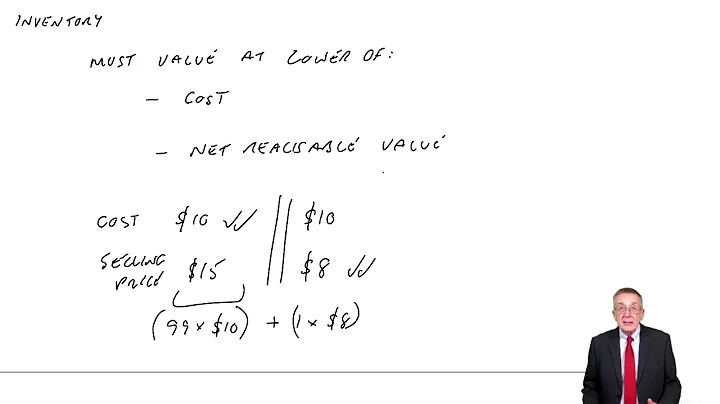 INVENTORY
MUST VALUE AT LOWER OF:
- COST
- NET REALISABLE VALUE
COST $10 ✓✓ || $10
SELLING PRICE $15 || $8 ✓✓
(99 x $10) + (1 x $8)